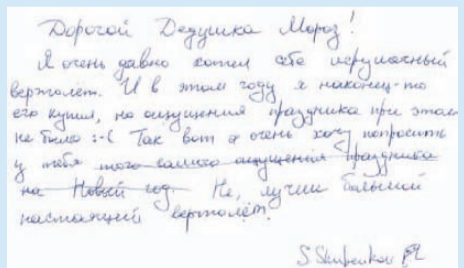 Дорогой Дедушка Мороз!
Я очень давно хотел себе игрушечный
вертолёт. И в этом году я наконец-то
его купил, но ощущения праздника при этом
не было :-( Так вот я очень хочу попросить
у тебя того самого ощущения праздника
на Новый год. Не, лучше большой
настоящий вертолёт.